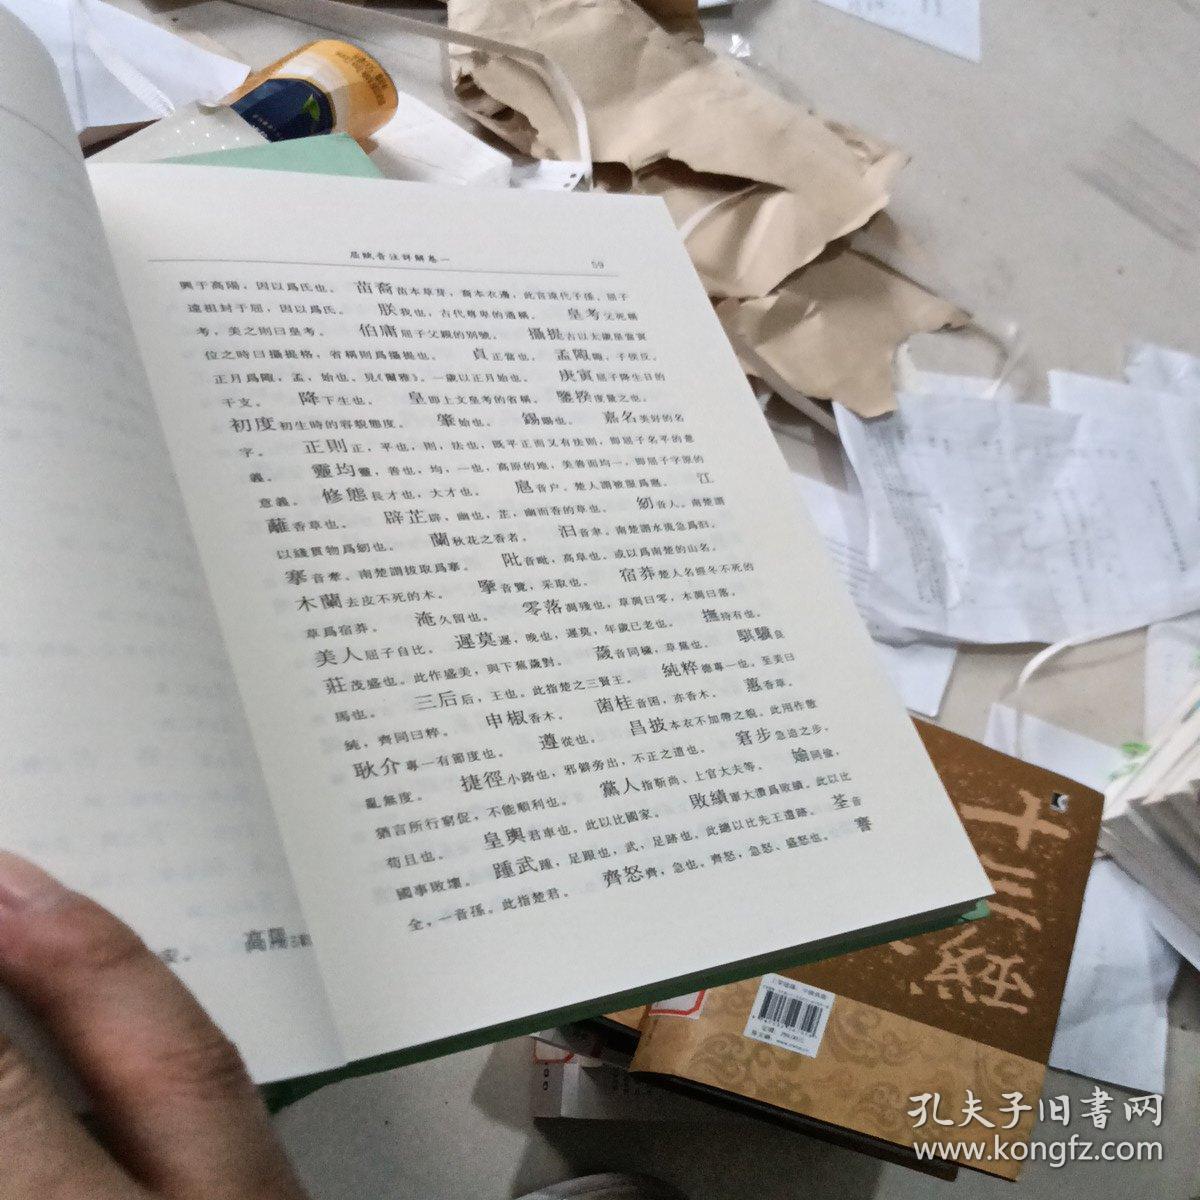 屈賦音注詳解卷一
59
興于高陽，因以爲氏也。 苗裔苗本草芽，裔本衣邊，此言遠代子孫。屈子
遠祖封于屈，因以爲氏。 朕我也，古代尊卑的通稱。 皇考父死稱
考，美之則曰皇考。 伯庸屈子父親的別號。 攝提古以太歲星當寅
位之時曰攝提格，省稱則爲攝提也。 貞正當也。 孟陬陬，子侯反。
正月爲陬，孟，始也。見《爾雅》。一歲以正月始也。 庚寅屈子降生日的
干支。 降下生也。 皇即上文皇考的省稱。 鑒揆度量之也。
初度初生時的容貌態度。 肇始也。 錫賜也。 嘉名美好的名
字。 正則正，平也，則，法也，既平正而又有法則，即屈子名平的意
義。 靈均靈，善也，均，一也，高原的地，美善而均一，即屈子字原的
意義。 修態長才也，大才也。 扈音户。楚人謂被服爲扈。 江
蘺香草也。 辟芷辟，幽也，芷，幽而香的草也。 紉音人。南楚謂
以綫貫物爲紉也。 蘭秋花之香者。 汩音聿。南楚謂水流急爲汩。
搴音牽。南楚謂拔取爲搴。 阰音毗，高阜也。或以爲南楚的山名。
木蘭去皮不死的木。 擥音覽，采取也。 宿莽楚人名經冬不死的
草爲宿莽。 淹久留也。 零落凋殘也，草凋曰零，木凋曰落。
美人屈子自比。 遲莫遲，晚也，遲莫，年歲已老也。 撫持有也。
莊茂盛也。此作盛美，與下蕪薉對。 薉音同穢，草蕪也。 騏驥良
馬也。 三后后，王也。此指楚之三賢王。 純粹德專一也。至美曰
純，齊同曰粹。 申椒香木。 菌桂音囷，亦香木。 蕙香草。
耿介專一有節度也。 遵從也。 昌披本衣不加帶之貌。此用作散
亂無度。 捷徑小路也，邪僻旁出，不正之道也。 窘步急迫之步，
猶言所行窮促，不能順利也。 黨人指靳尚、上官大夫等。 媮同偷，
苟且也。 皇輿君車也。此以比國家。 敗績軍大潰爲敗績。此以比
國事敗壞。 踵武踵，足跟也，武，足跡也。此總以比先王遺跡。 荃音
全，一音孫。此指楚君。 齊怒齊，急也。齊怒，急怒、盛怒也。 謇
高陽
十三經
孔夫子旧書网
www.kongfz.com